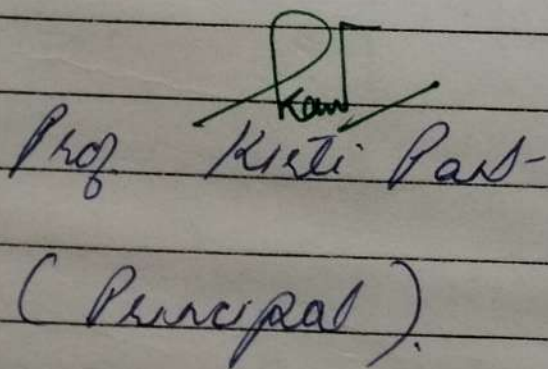 Prof Kirti Pant
(Principal).